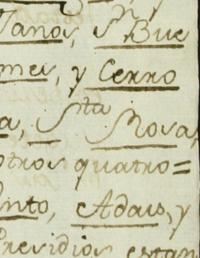 Janos, Sn. Bue
mes, y Cerro
a, Sta Rosa,
otros quatro=
nto, Adais, y
Presidios estan